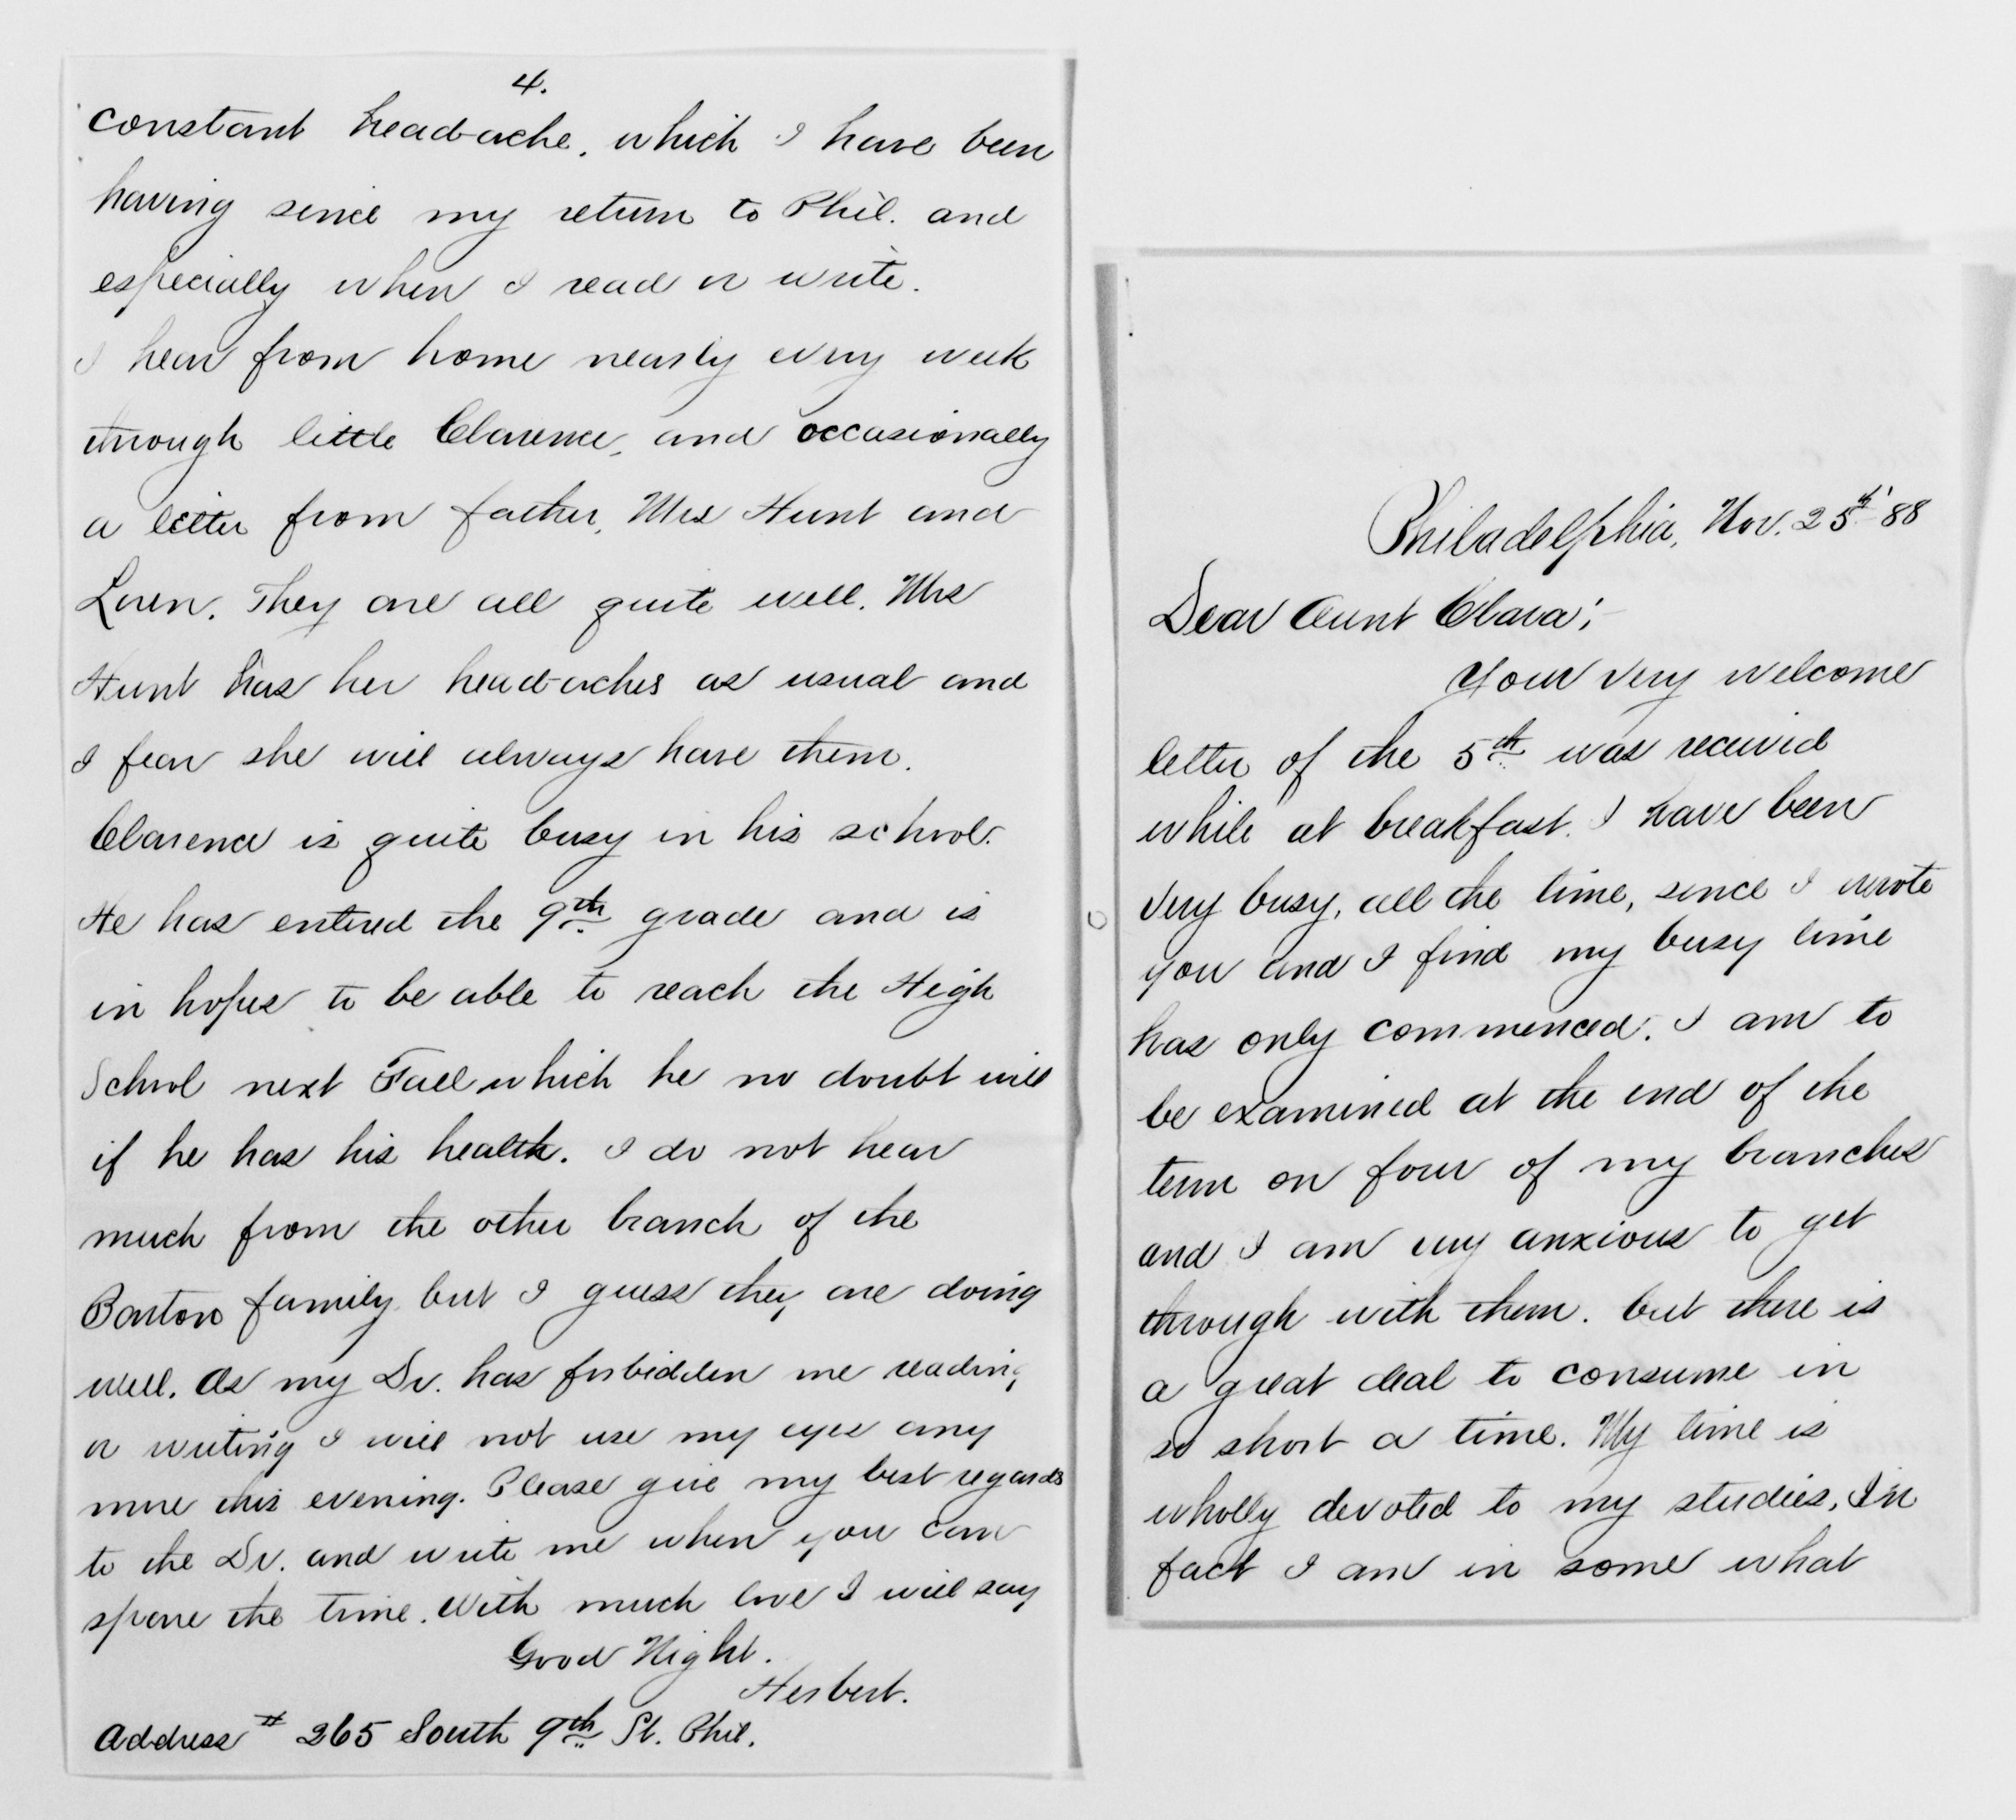 4.
constant head-ache, which I have been
having since my return to Phil. and
especially when I read or write.
I hear from home nearly every week
through little Clarence, and occasionally
a letter from father, Mrs Hunt and
Loren. They are all quite well. Mrs
Hunt has her head-aches as usual and
I fear she will always have them.
Clarence is quite busy in his school.
He has entered the 9th grade and is
in hopes to be able to reach the High
School next Fall which he no doubt will
if he has his health. I do not hear
much from the other branch of the
Barton family but I guess they are doing
well. As my Dr. has forbidden me reading
or writing I will not use my eyes any
more this evening. Please give my best regards
to the Dr. and write me when you can
spare the time. With much love I will say
Good Night.
Herbert.
Address # 265 South 9th St. Phil.
Philadelphia, Nov. 25th '88
Dear Aunt Clara;
Your very welcome
letter of the 5th was received
while at breakfast. I have been
very busy, all the time, since I wrote
you and I find my busy time
has only commenced. I am to
be examined at the end of the
term on four of my branches
and I am very anxious to get
through with them. but there is
a great deal to consume in
so short a time. My time is
wholly devoted to my studies. In
fact I am in some what